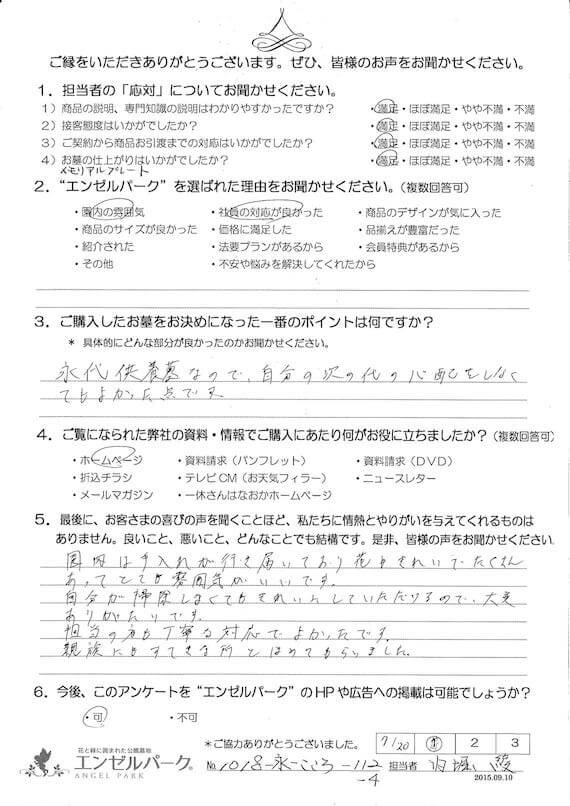 ご縁をいただきありがとうございます。ぜひ、皆様のお声をお聞かせください。
1．担当者の「応対」についてお聞かせください。
1）商品の説明、専門知識の説明はわかりやすかったですか？ ・満足・ほぼ満足・やや不満・不満
2）接客態度はいかがでしたか？ ・満足・ほぼ満足・やや不満・不満
3）ご契約から商品お引渡までの対応はいかがでしたか？ ・満足・ほぼ満足・やや不満・不満
4）お墓の仕上がりはいかがでしたか？ ・満足・ほぼ満足・やや不満・不満
メモリアルプレート
2．“エンゼルパーク”を選ばれた理由をお聞かせください。（複数回答可）
・園内の雰囲気 ・社員の対応が良かった ・商品のデザインが気に入った
・商品のサイズが良かった ・価格に満足した ・品揃えが豊富だった
・紹介された ・法要プランがあるから ・会員特典があるから
・その他 ・不安や悩みを解決してくれたから
3．ご購入したお墓をお決めになった一番のポイントは何ですか？
＊ 具体的にどんな部分が良かったのかお聞かせください。
永代供養墓なので、自分の次の代の心配をしなく
てもよかった点です。
4．ご覧になられた弊社の資料・情報でご購入にあたり何がお役に立ちましたか？（複数回答可）
・ホームページ ・資料請求（パンフレット） ・資料請求（DVD）
・折込チラシ ・テレビCM（お天気フィラー） ・ニュースレター
・メールマガジン ・一休さんはなおかホームページ
5．最後に、お客さまの喜びの声を聞くことほど、私たちに情熱とやりがいを与えてくれるものは
ありません。良いこと、悪いこと、どんなことでも結構です。是非、皆様の声をお聞かせください
園内は手入れが行き届いており花もきれいでたくさん
あってとても雰囲気がいいです。
自分が掃除しなくてもきれいにしていただけるので、大変
ありがたいです。
担当の方も丁寧な対応でよかったです。
親族にもすてきな所とほめてもらいました。
6．今後、このアンケートを“エンゼルパーク”のHPや広告への掲載は可能でしょうか？
・可 ・不可
＊ご協力ありがとうございました。 7/20 1 2 3
花と緑に囲まれた公園墓地
エンゼルパーク®
ANGEL PARK
No. 1018-永-こころ-112-4 担当者
2015.09.10